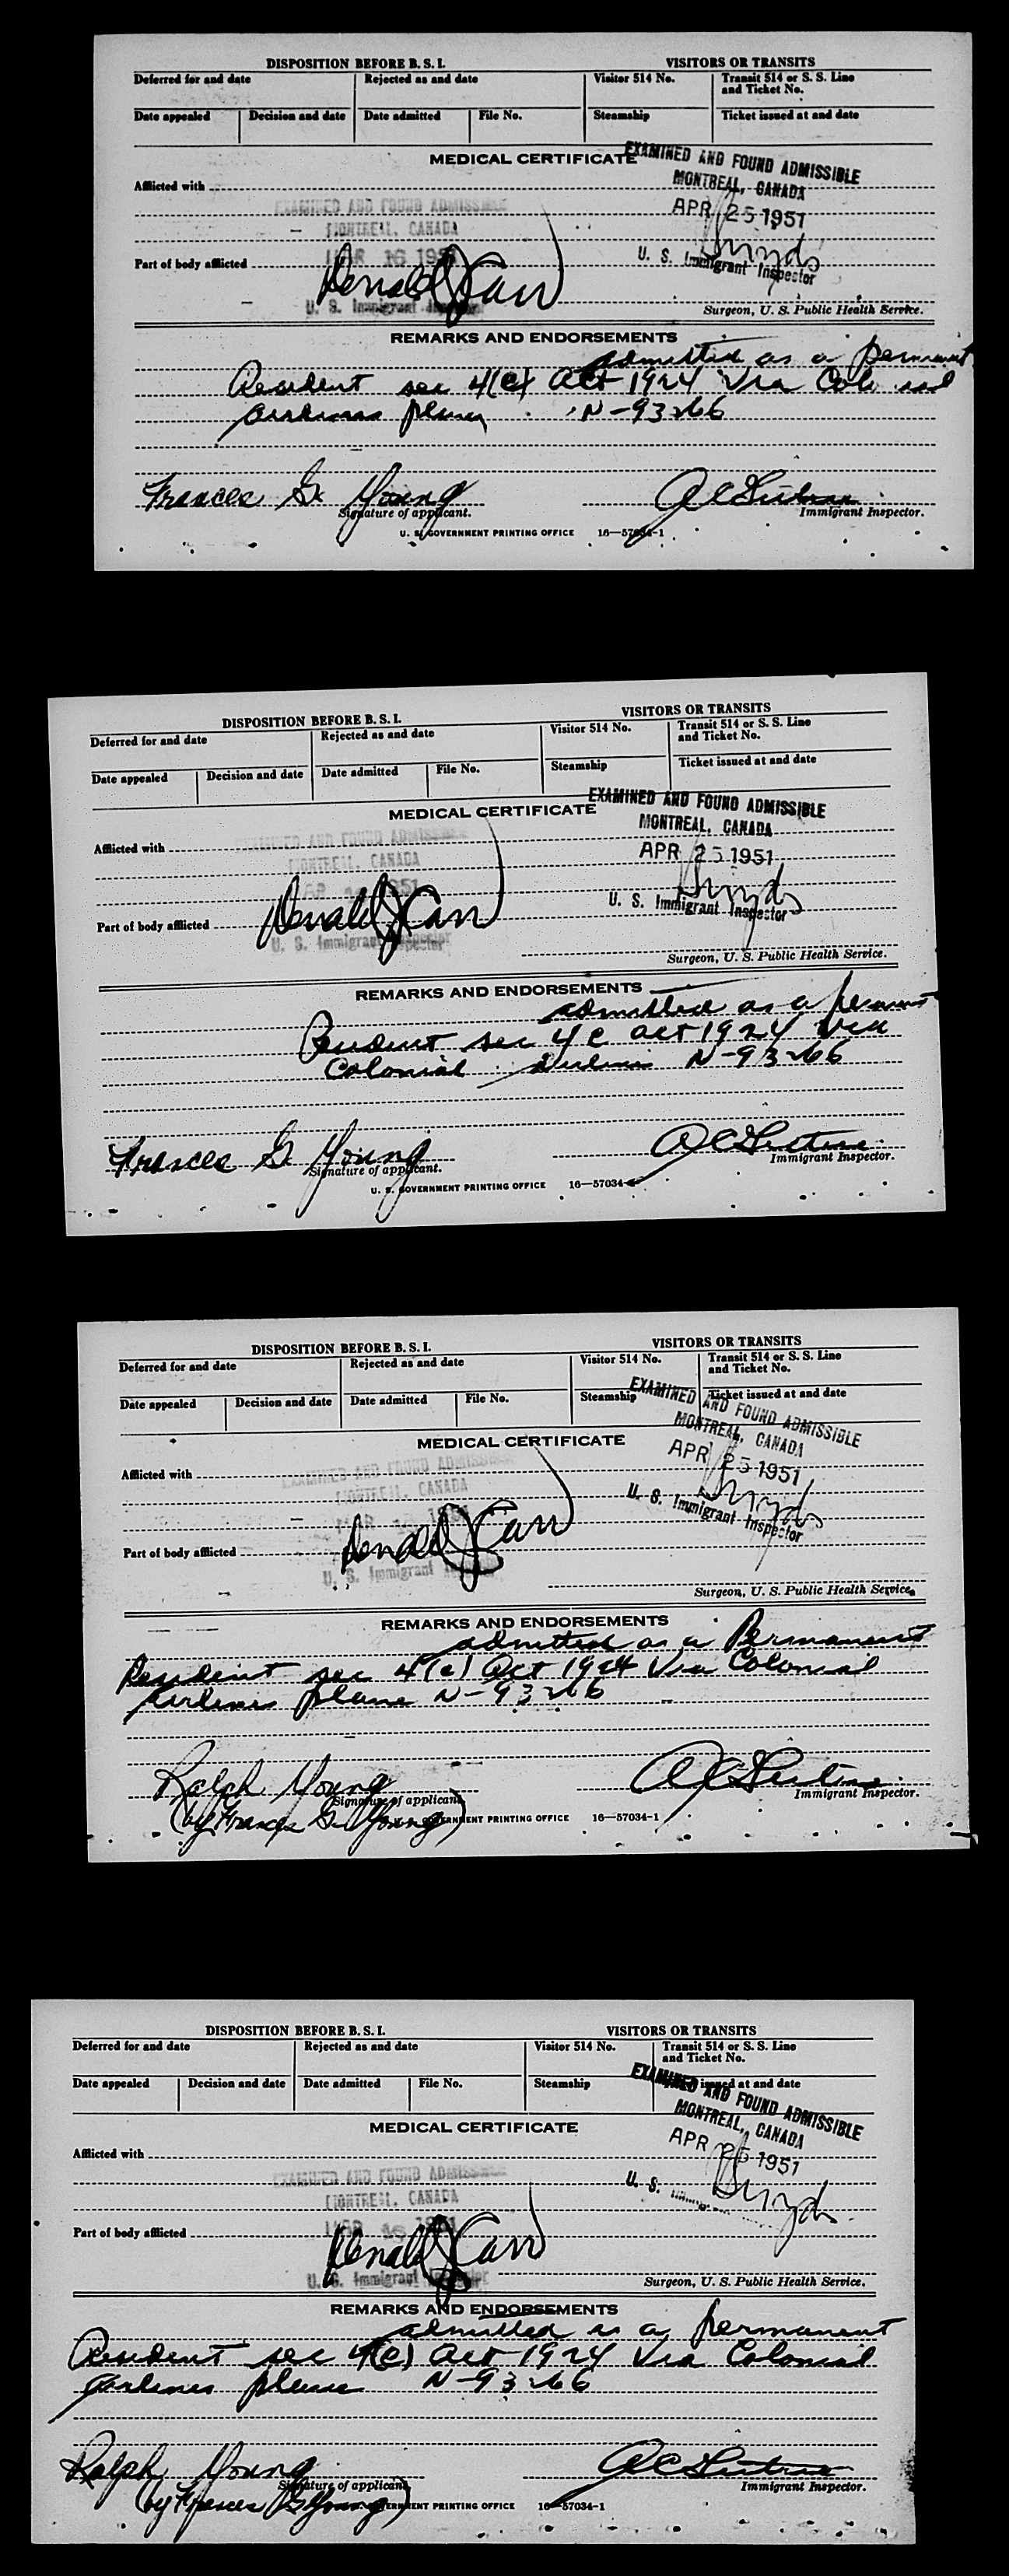 DISPOSITION BEFORE B. S. I. VISITORS OR TRANSITS
Deferred for and date Rejected as and date Visitor 514 No. Transit 514 or S. S. Line and Ticket No.
Date appealed Decision and date Date admitted File No. Steamship Ticket issued at and date
MEDICAL CERTIFICATE
EXAMINED AND FOUND ADMISSIBLE
MONTREAL, CANADA
APR 25 1951
U. S. Immigrant Inspector
Afflicted with
EXAMINED AND FOUND ADMISSIBLE
MONTREAL, CANADA
MAR 16 195
Part of body afflicted
Donald J Carr
U. S. Immigrant
Surgeon, U. S. Public Health Service.
REMARKS AND ENDORSEMENTS
admitted as a permanent
Resident sec 4(c) Act 1924 Via
airlines plane N-93266
Frances G. Young
Signature of applicant. Immigrant Inspector.
U. S. GOVERNMENT PRINTING OFFICE 16—57034-1
DISPOSITION BEFORE B. S. I. VISITORS OR TRANSITS
Deferred for and date Rejected as and date Visitor 514 No. Transit 514 or S. S. Line and Ticket No.
Date appealed Decision and date Date admitted File No. Steamship Ticket issued at and date
MEDICAL CERTIFICATE
EXAMINED AND FOUND ADMISSIBLE
MONTREAL, CANADA
APR 25 1951
U. S. Immigrant Inspector
Afflicted with
AND FOUND ADMISSIBLE
MONTREAL, CANADA
Part of body afflicted
Donald J Carr
U. S. Immigrant Inspector
Surgeon, U. S. Public Health Service.
REMARKS AND ENDORSEMENTS
admitted as a permanent
Resident sec 4 c act 1924 via
Colonial Airlines N-93266
Frances G Young
Signature of applicant. Immigrant Inspector.
U. S. GOVERNMENT PRINTING OFFICE 16—57034-
DISPOSITION BEFORE B. S. I. VISITORS OR TRANSITS
Deferred for and date Rejected as and date Visitor 514 No. Transit 514 or S. S. Line and Ticket No.
Date appealed Decision and date Date admitted File No. Steamship Ticket issued at and date
EXAMINED AND FOUND ADMISSIBLE
MONTREAL, CANADA
APR 25 1951
U. S. Immigrant Inspector
MEDICAL CERTIFICATE
Afflicted with
EXAMINED AND FOUND ADMISSIBLE
MONTREAL, CANADA
Part of body afflicted
Donald J Carr
U. S. Immigrant
Surgeon, U. S. Public Health Service.
REMARKS AND ENDORSEMENTS
admitted as a Permanent
Resident sec 4(c) Act 1924 Via Colonial
Airlines plane N-93266
Ralph Young
Signature of applicant Immigrant Inspector.
(by Frances G. Young)
GOVERNMENT PRINTING OFFICE 16—57034-1
DISPOSITION BEFORE B. S. I. VISITORS OR TRANSITS
Deferred for and date Rejected as and date Visitor 514 No. Transit 514 or S. S. Line and Ticket No.
Date appealed Decision and date Date admitted File No. Steamship issued at and date
EXAMINED AND FOUND ADMISSIBLE
MONTREAL, CANADA
APR 25 1951
U. S.
MEDICAL CERTIFICATE
Afflicted with
EXAMINED AND FOUND ADMISSIBLE
MONTREAL, CANADA
Part of body afflicted
Donald J Carr
U. S. Immigrant
Surgeon, U. S. Public Health Service.
REMARKS AND ENDORSEMENTS
admitted as a permanent
Resident sec 4(c) Act 1924 Via Colonial
Airlines plane N-93266
Ralph Young
Signature of applicant Immigrant Inspector.
(by Frances G Young)
PRINTING OFFICE 16—57034-1